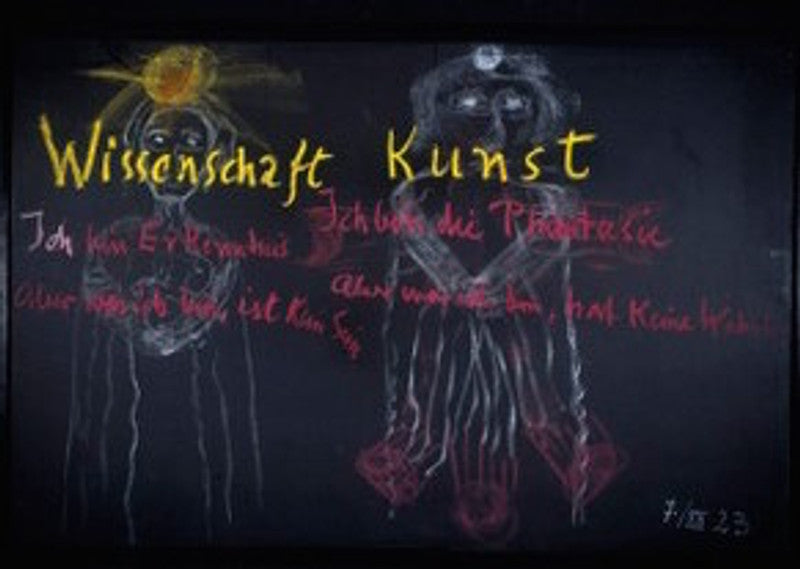 Wissenschaft
Ich bin Erkenntnis
Aber was ich bin, ist kein Sein
Kunst
Ich bin die Phantasie
Aber was ich bin, hat keine
23